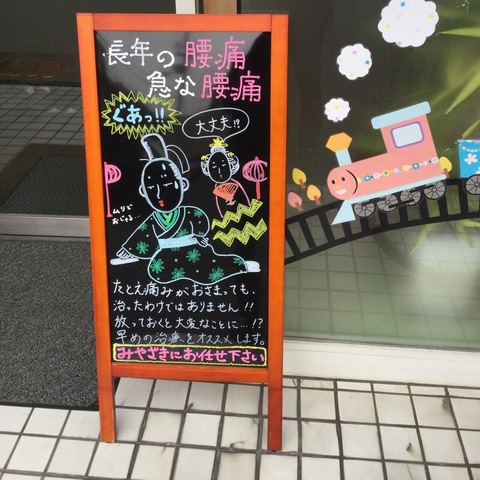 長年の腰痛
急な腰痛
ぐあっ!!
大丈夫!?
ムリで
おじゃる…
たとえ痛みがおさまっても、
治ったわけではありません!!
放っておくと大変なことに…!?
早めの治療をオススメします。
みやざきにお任せ下さい